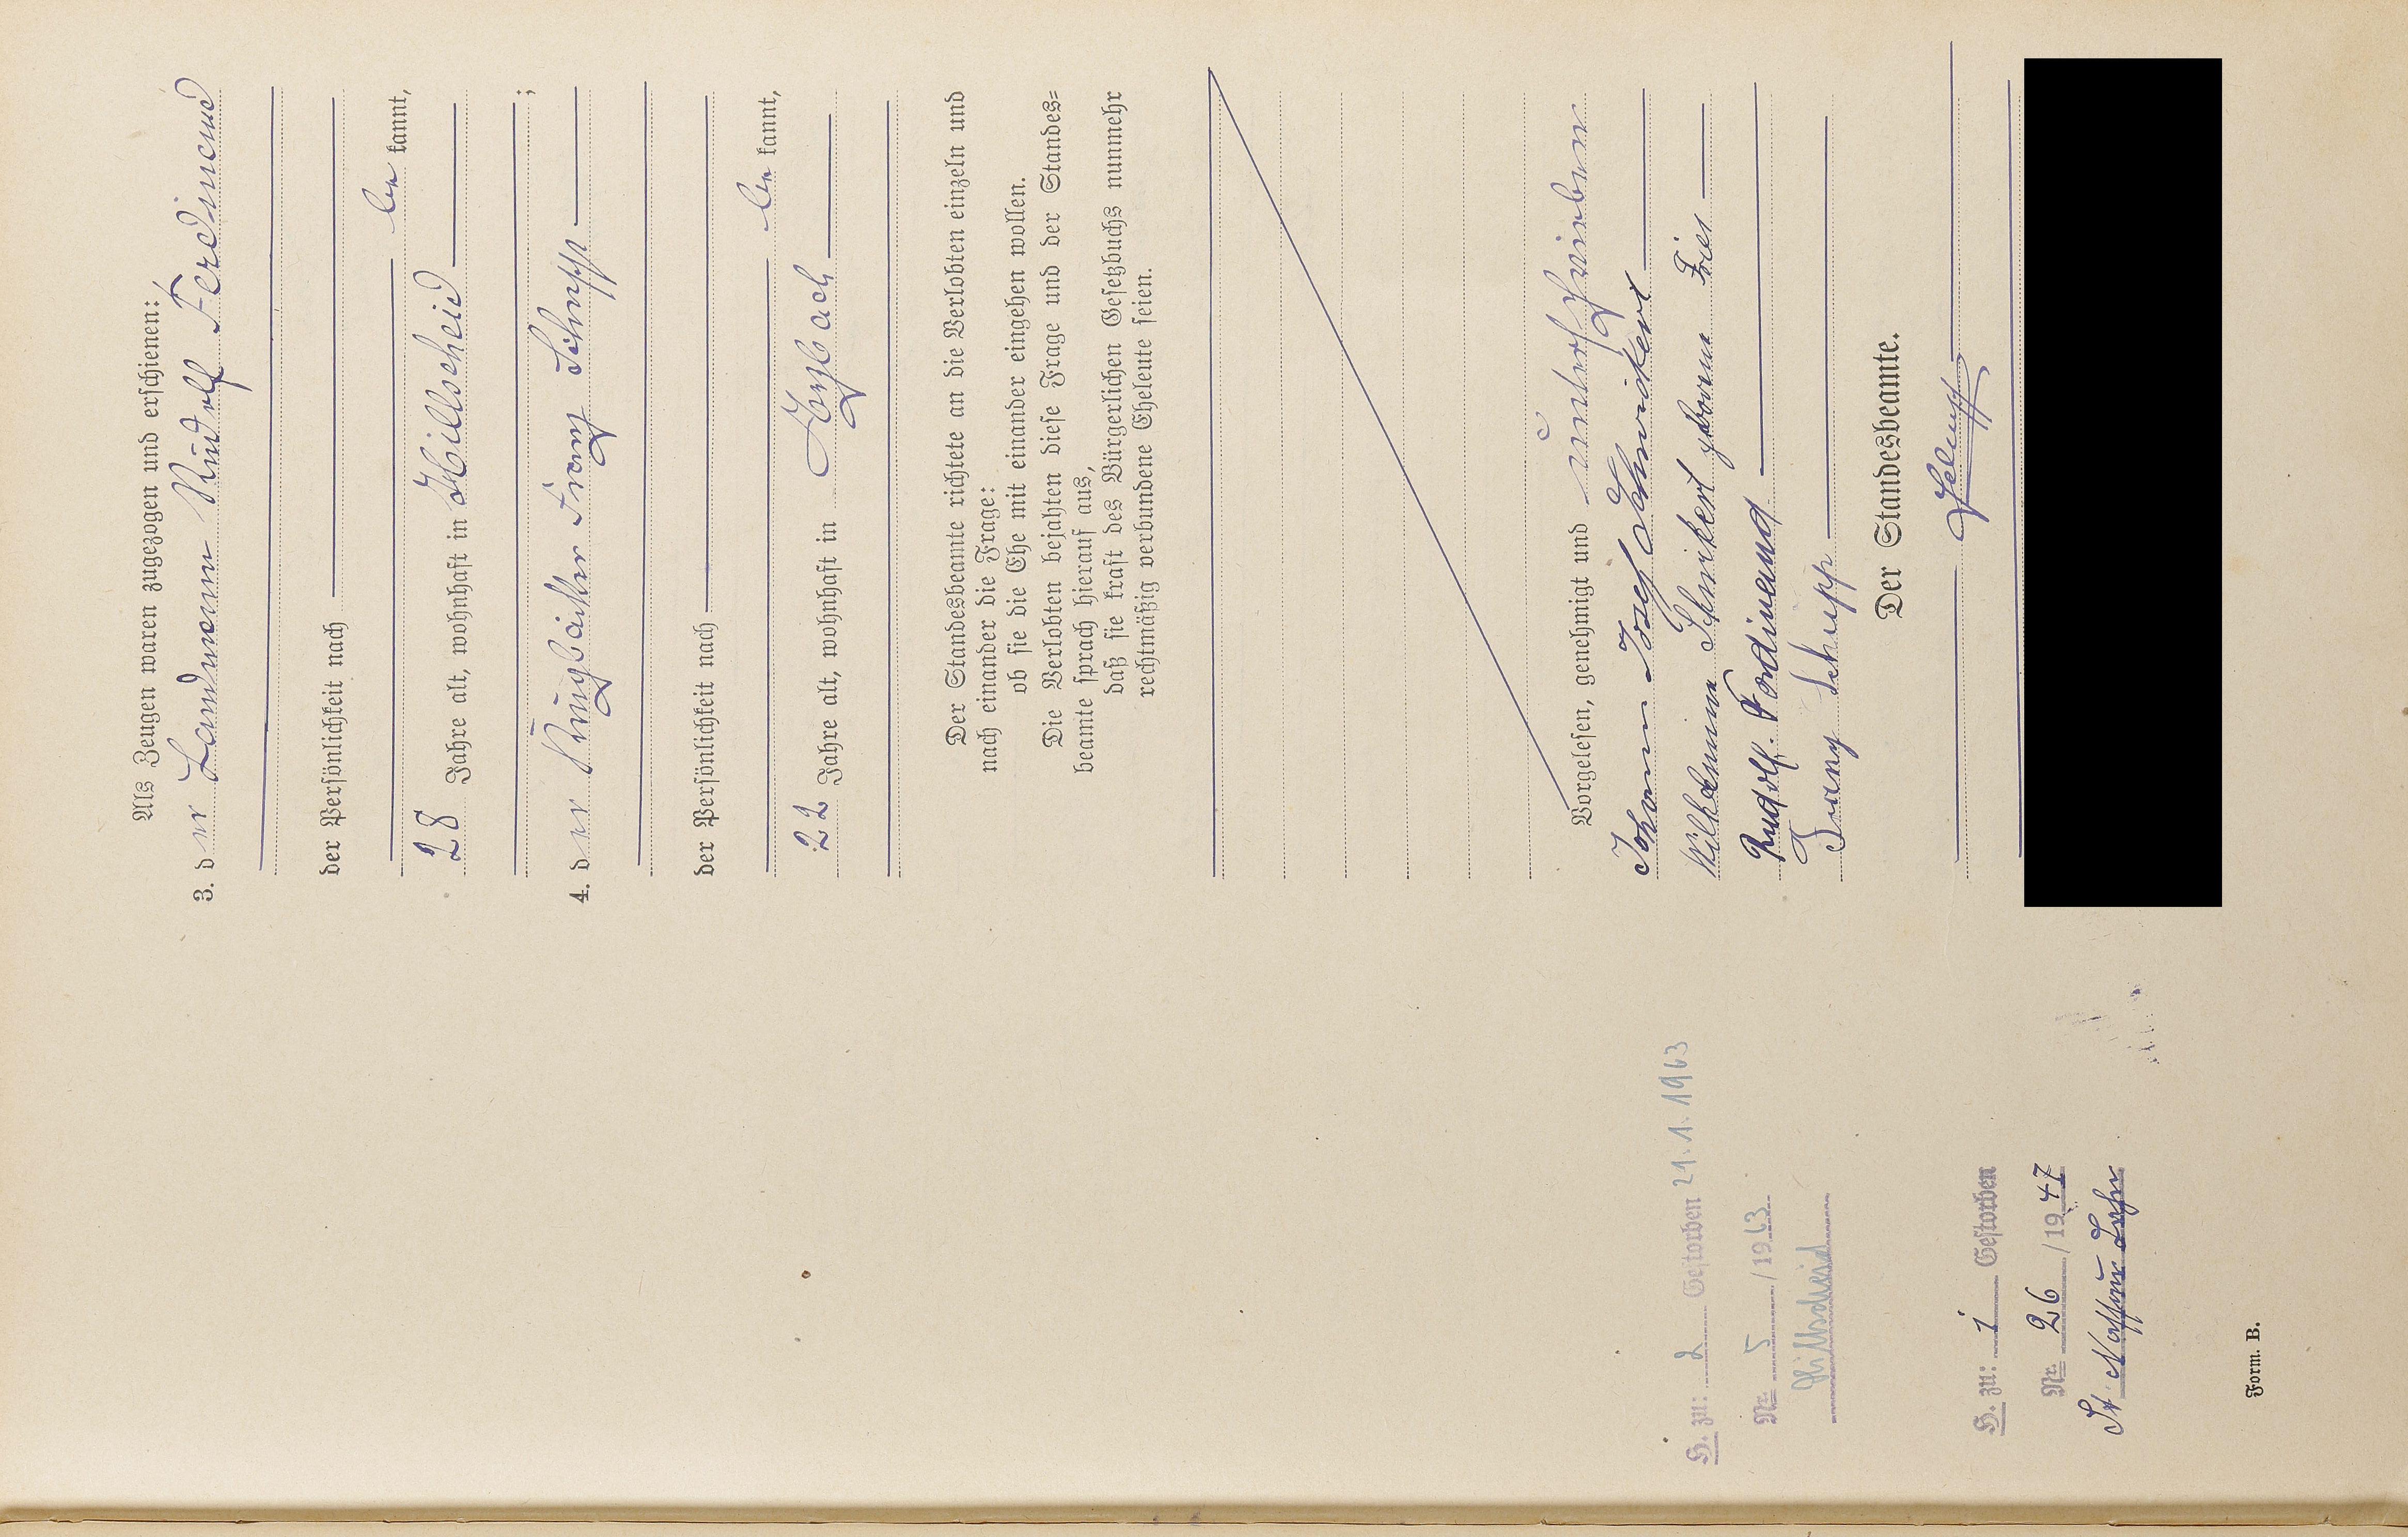 Als Zeugen waren zugezogen und erschienen:
3. der Landmann Rudolf Ferdinand
der Persönlichkeit nach
be kannt,
28 Jahre alt, wohnhaft in Hillscheid
;
4. der Krugbäcker Franz Schupp
der Persönlichkeit nach
be kannt,
22 Jahre alt, wohnhaft in
Der Standesbeamte richtete an die Verlobten einzeln und
nach einander die Frage:
ob sie die Ehe mit einander eingehen wollen.
Die Verlobten bejahten diese Frage und der Standes=
beamte sprach hierauf aus,
daß sie kraft des Bürgerlichen Gesetzbuchs nunmehr
rechtmäßig verbundene Eheleute seien.
Vorgelesen, genehmigt und unterschrieben
Johann Josef Schwickert
Wilhelmina Schwikert geborene Fries
Rudolf Ferdinand
Franz Schupp
Der Standesbeamte.
H. zu: 2 Gestorben 21.1.1963
Nr. 5 / 1963
Hillscheid
H. zu: 1 Gestorben
Nr. 26 / 1947
St. Nassau Lahn
Form. B.